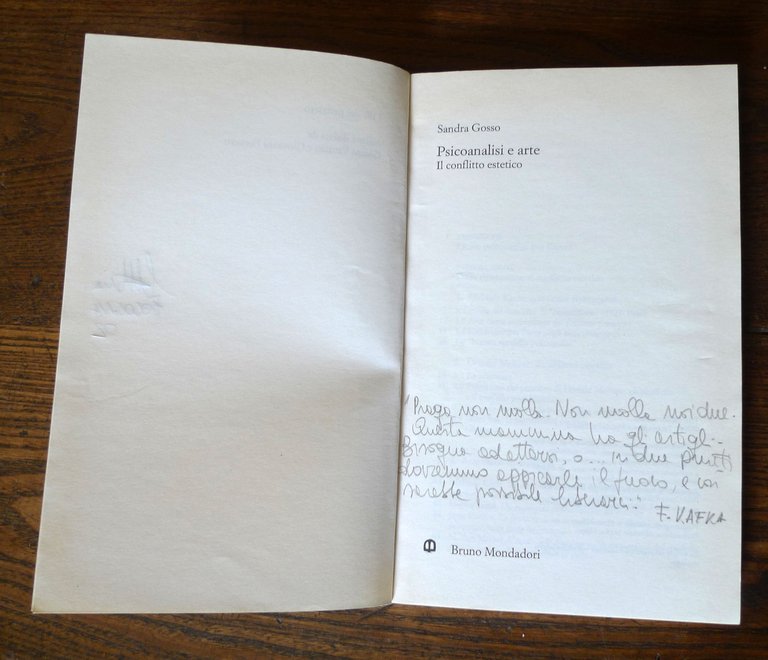 Sandra Gosso
Psicoanalisi e arte
Il conflitto estetico
"Praga non molla. Non molla noi due.
Questa mammina ha gli artigli..
Bisogna adattarsi, o... in due punti
dovremmo appiccarle il fuoco, e così
sarebbe possibile liberarci."
F. KAFKA
Bruno Mondadori